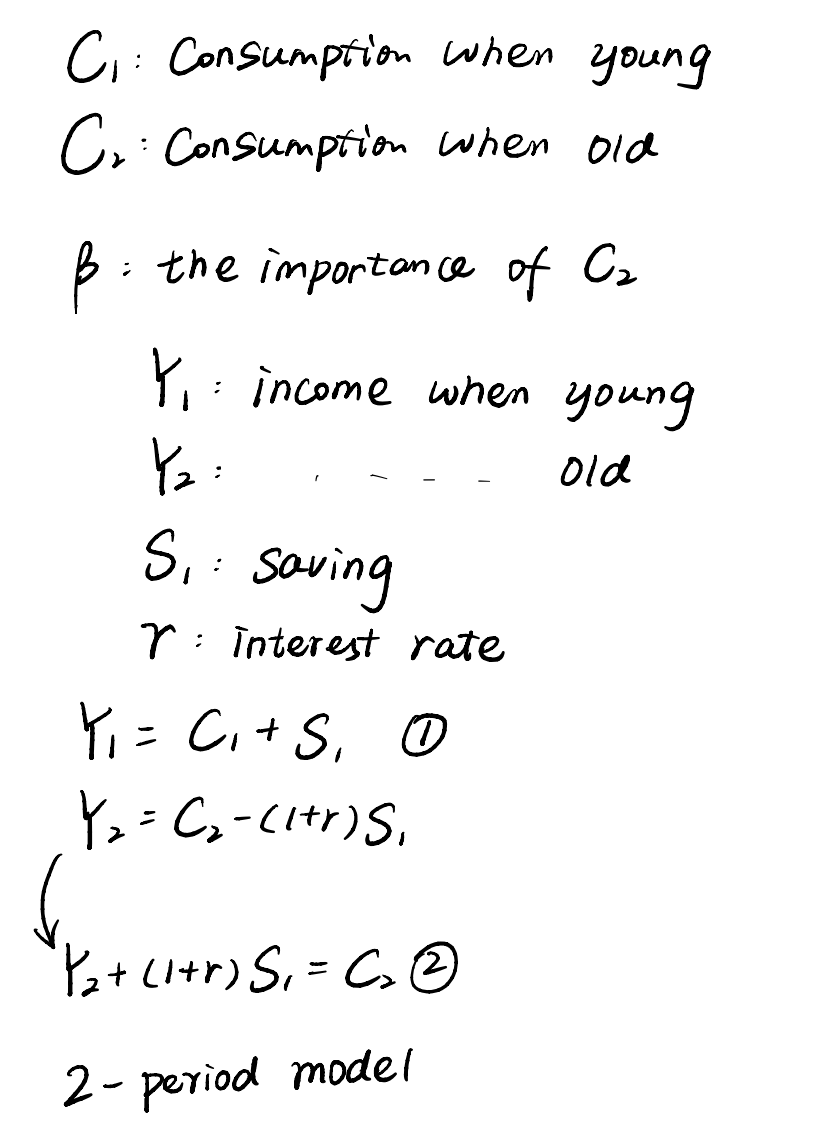 C₁: Consumption when young
C₂: Consumption when old
β: the importance of C₂
Y₁: income when young
Y₂: - - - - old
S₁: saving
r: interest rate
Y₁ = C₁ + S₁ ①
Y₂ = C₂ - (1+r)S₁
Y₂ + (1+r)S₁ = C₂ ②
2-period model